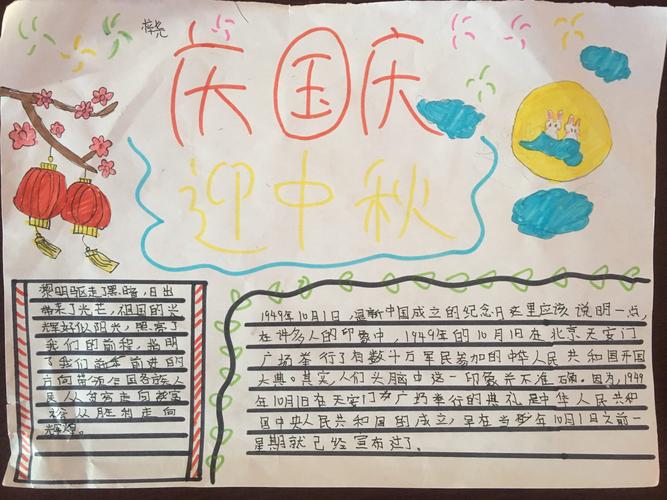 庆国庆
迎中秋
黎明驱走了黑暗,日出
带来了光芒,祖国的光
辉好似阳光,照亮了
我们的前程,指明
了我们前进的
方向带领全国各族人
民从贫穷走向
从胜利走向
辉煌。
1949年10月1日,是新中国成立的纪念日这里应该说明一点,
在许多人的印象中,1949年的10月1日在北京天安门
广场举行了有数十万军民参加的中华人民共和国开国
大典。其实,人们头脑中这一印象并不准确。因为,1949
年10月1日在天安门广场举行的典礼是中华人民共和
国中央人民共和国的成立,早在当年10月1日之前一
星期就已经宣布过了。